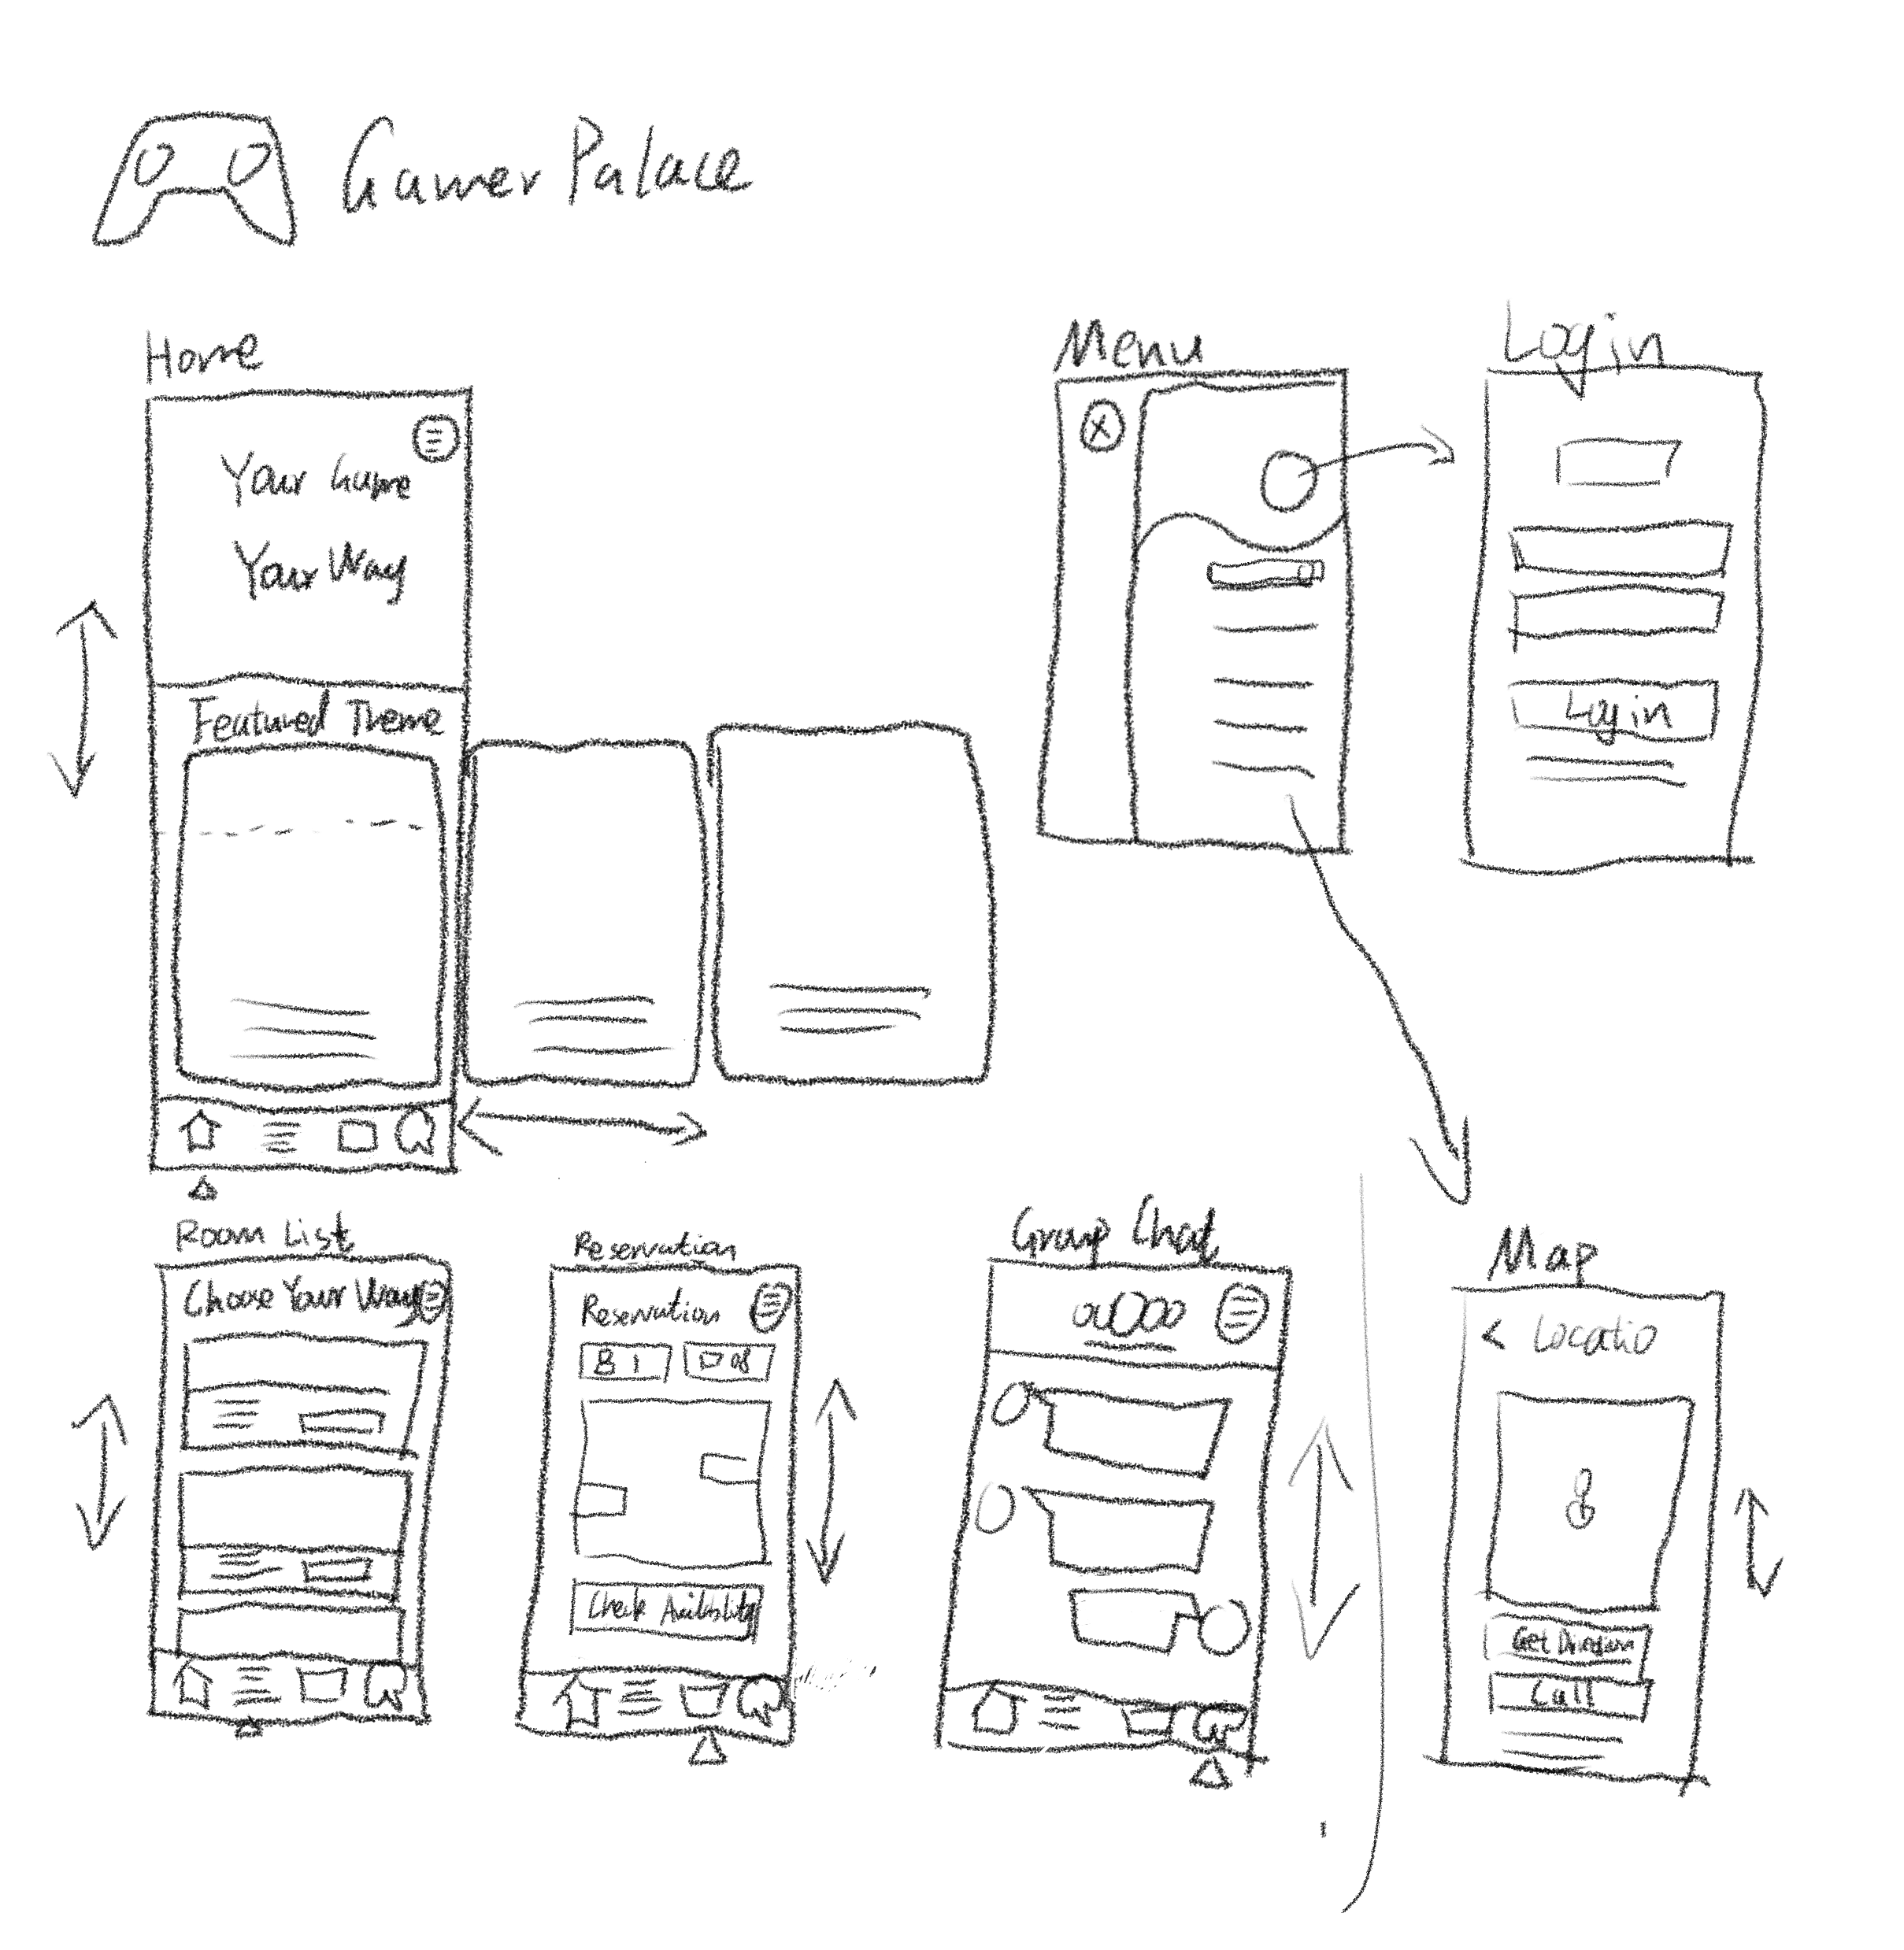 Gamer Palace
Home
Your Game
Your Way
Featured Theme
Menu
X
Login
Login
Room List
Choose Your Way
Reservation
Reservation
1
08
Check
Group Chat
Map
< Locatio
Get
Call